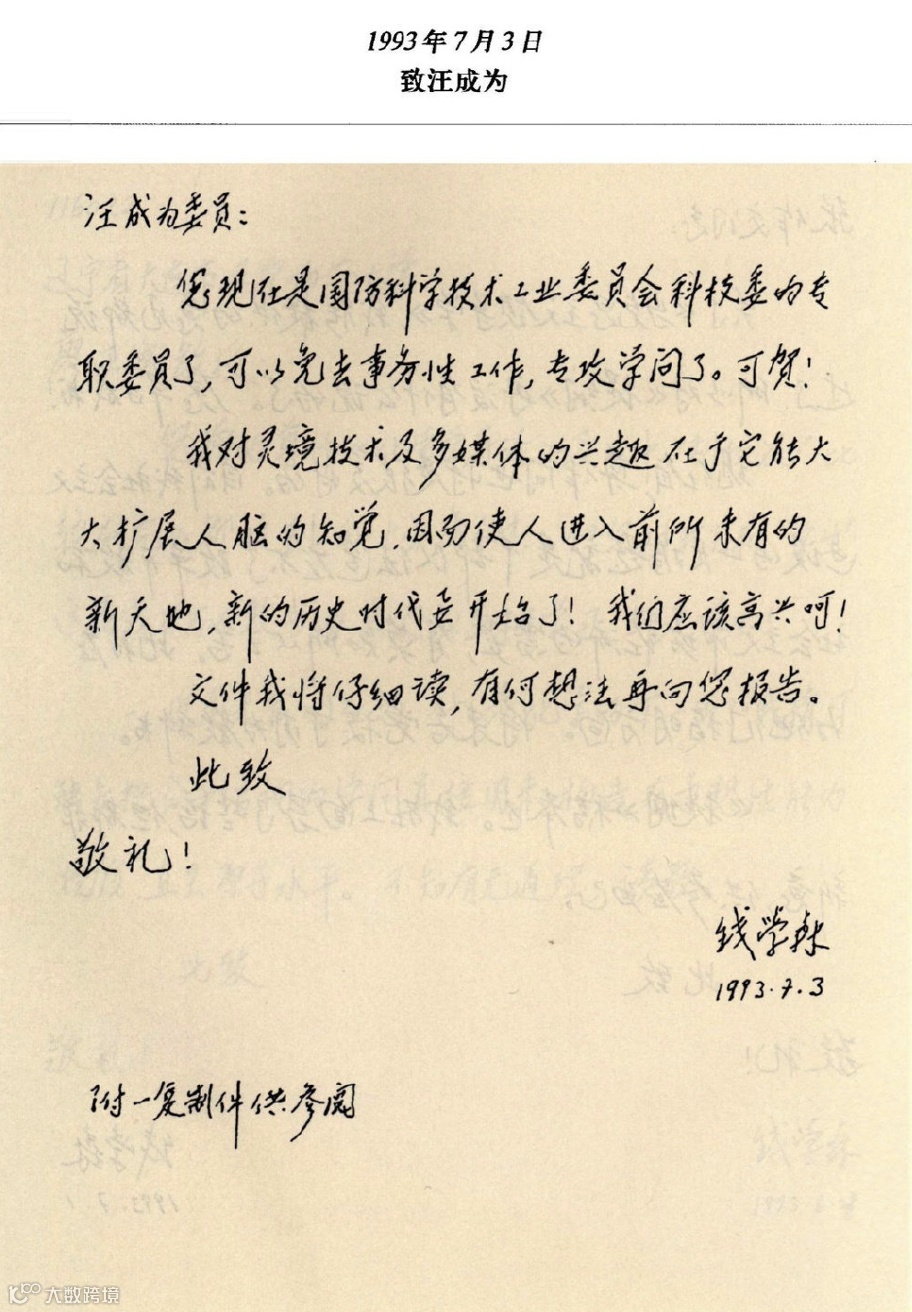 1993年7月3日
致汪成为
汪成为委员：
您现在是国防科学技术工业委员会科技委的专
职委员了，可以免去事务性工作，专攻学问了。可贺！
我对灵境技术及多媒体的兴趣在于它能大
大扩展人脑的知觉，因而使人进入前所未有的
新天地，新的历史时代要开始了！我们应该高兴呵！
文件我将仔细读，有何想法再向您报告。
此致
敬礼！
钱学森
1993.7.3
附一复制件供参阅
大数跨境